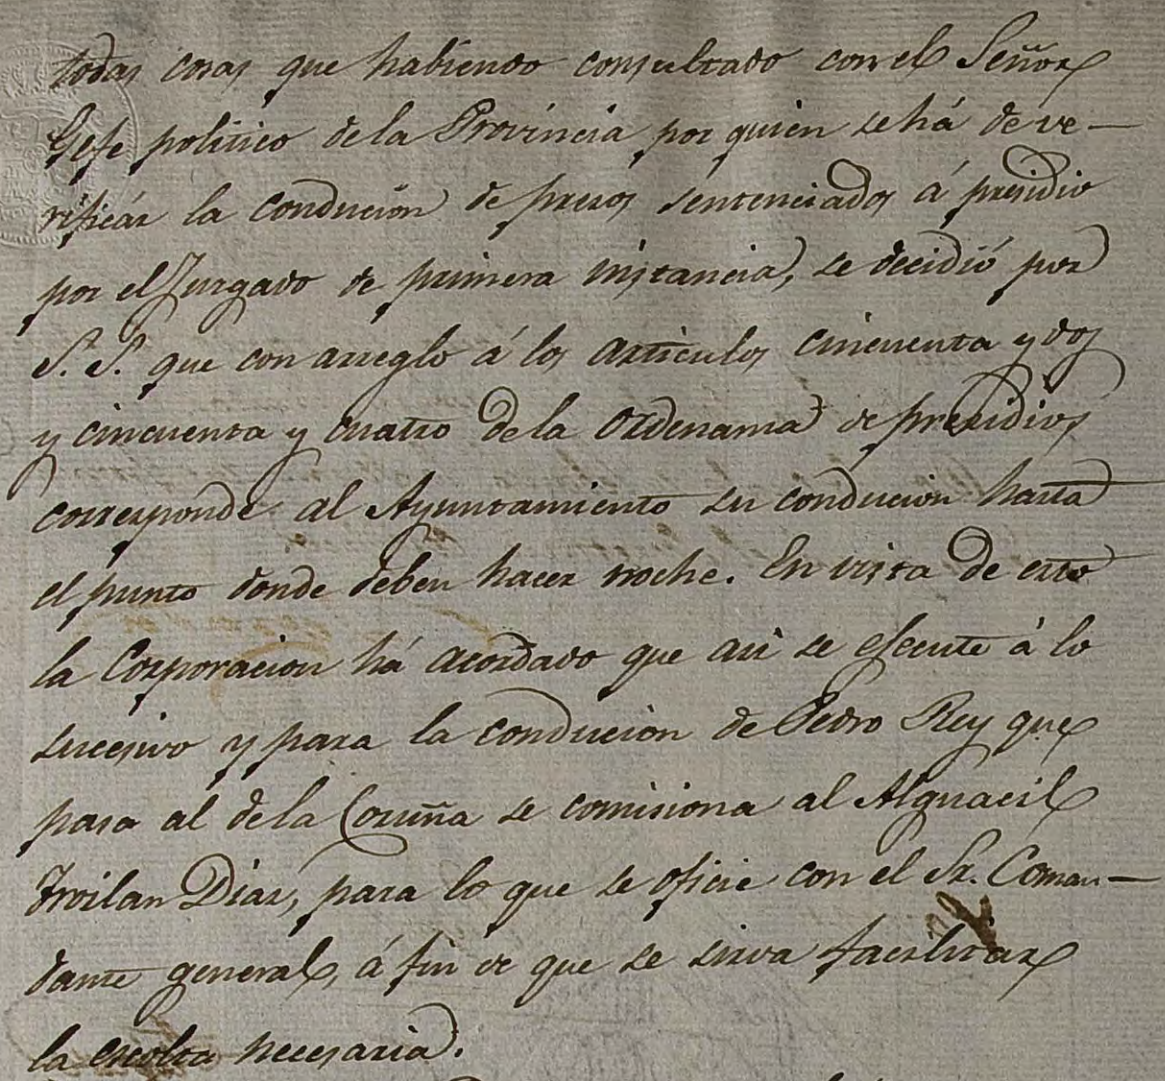 todas cosas que habiendo consultado con el Señor
Gefe politico de la Provincia por quien se há de ve-
rificár la condución de presos sentenciados á presidio
por el Juzgado de primera instancia, se decidió por
S. S. que con arreglo á los artículos cincuenta y dos
y cincuenta y cuatro de la ordenanza de presidios
corresponde al Ayuntamiento su condución hasta
el punto donde deben hacer noche. En vista de esto
la Corporacion há acordado que asi se efecute á lo
sucesivo y para la condución de Pedro Rey que
pasa al de la Coruña se comisiona al Alguacil
Froilan Diaz, para lo que se oficie con el Sr. Coman-
dante general, á fin de que se sirva facilitar
la escolta necesaria.